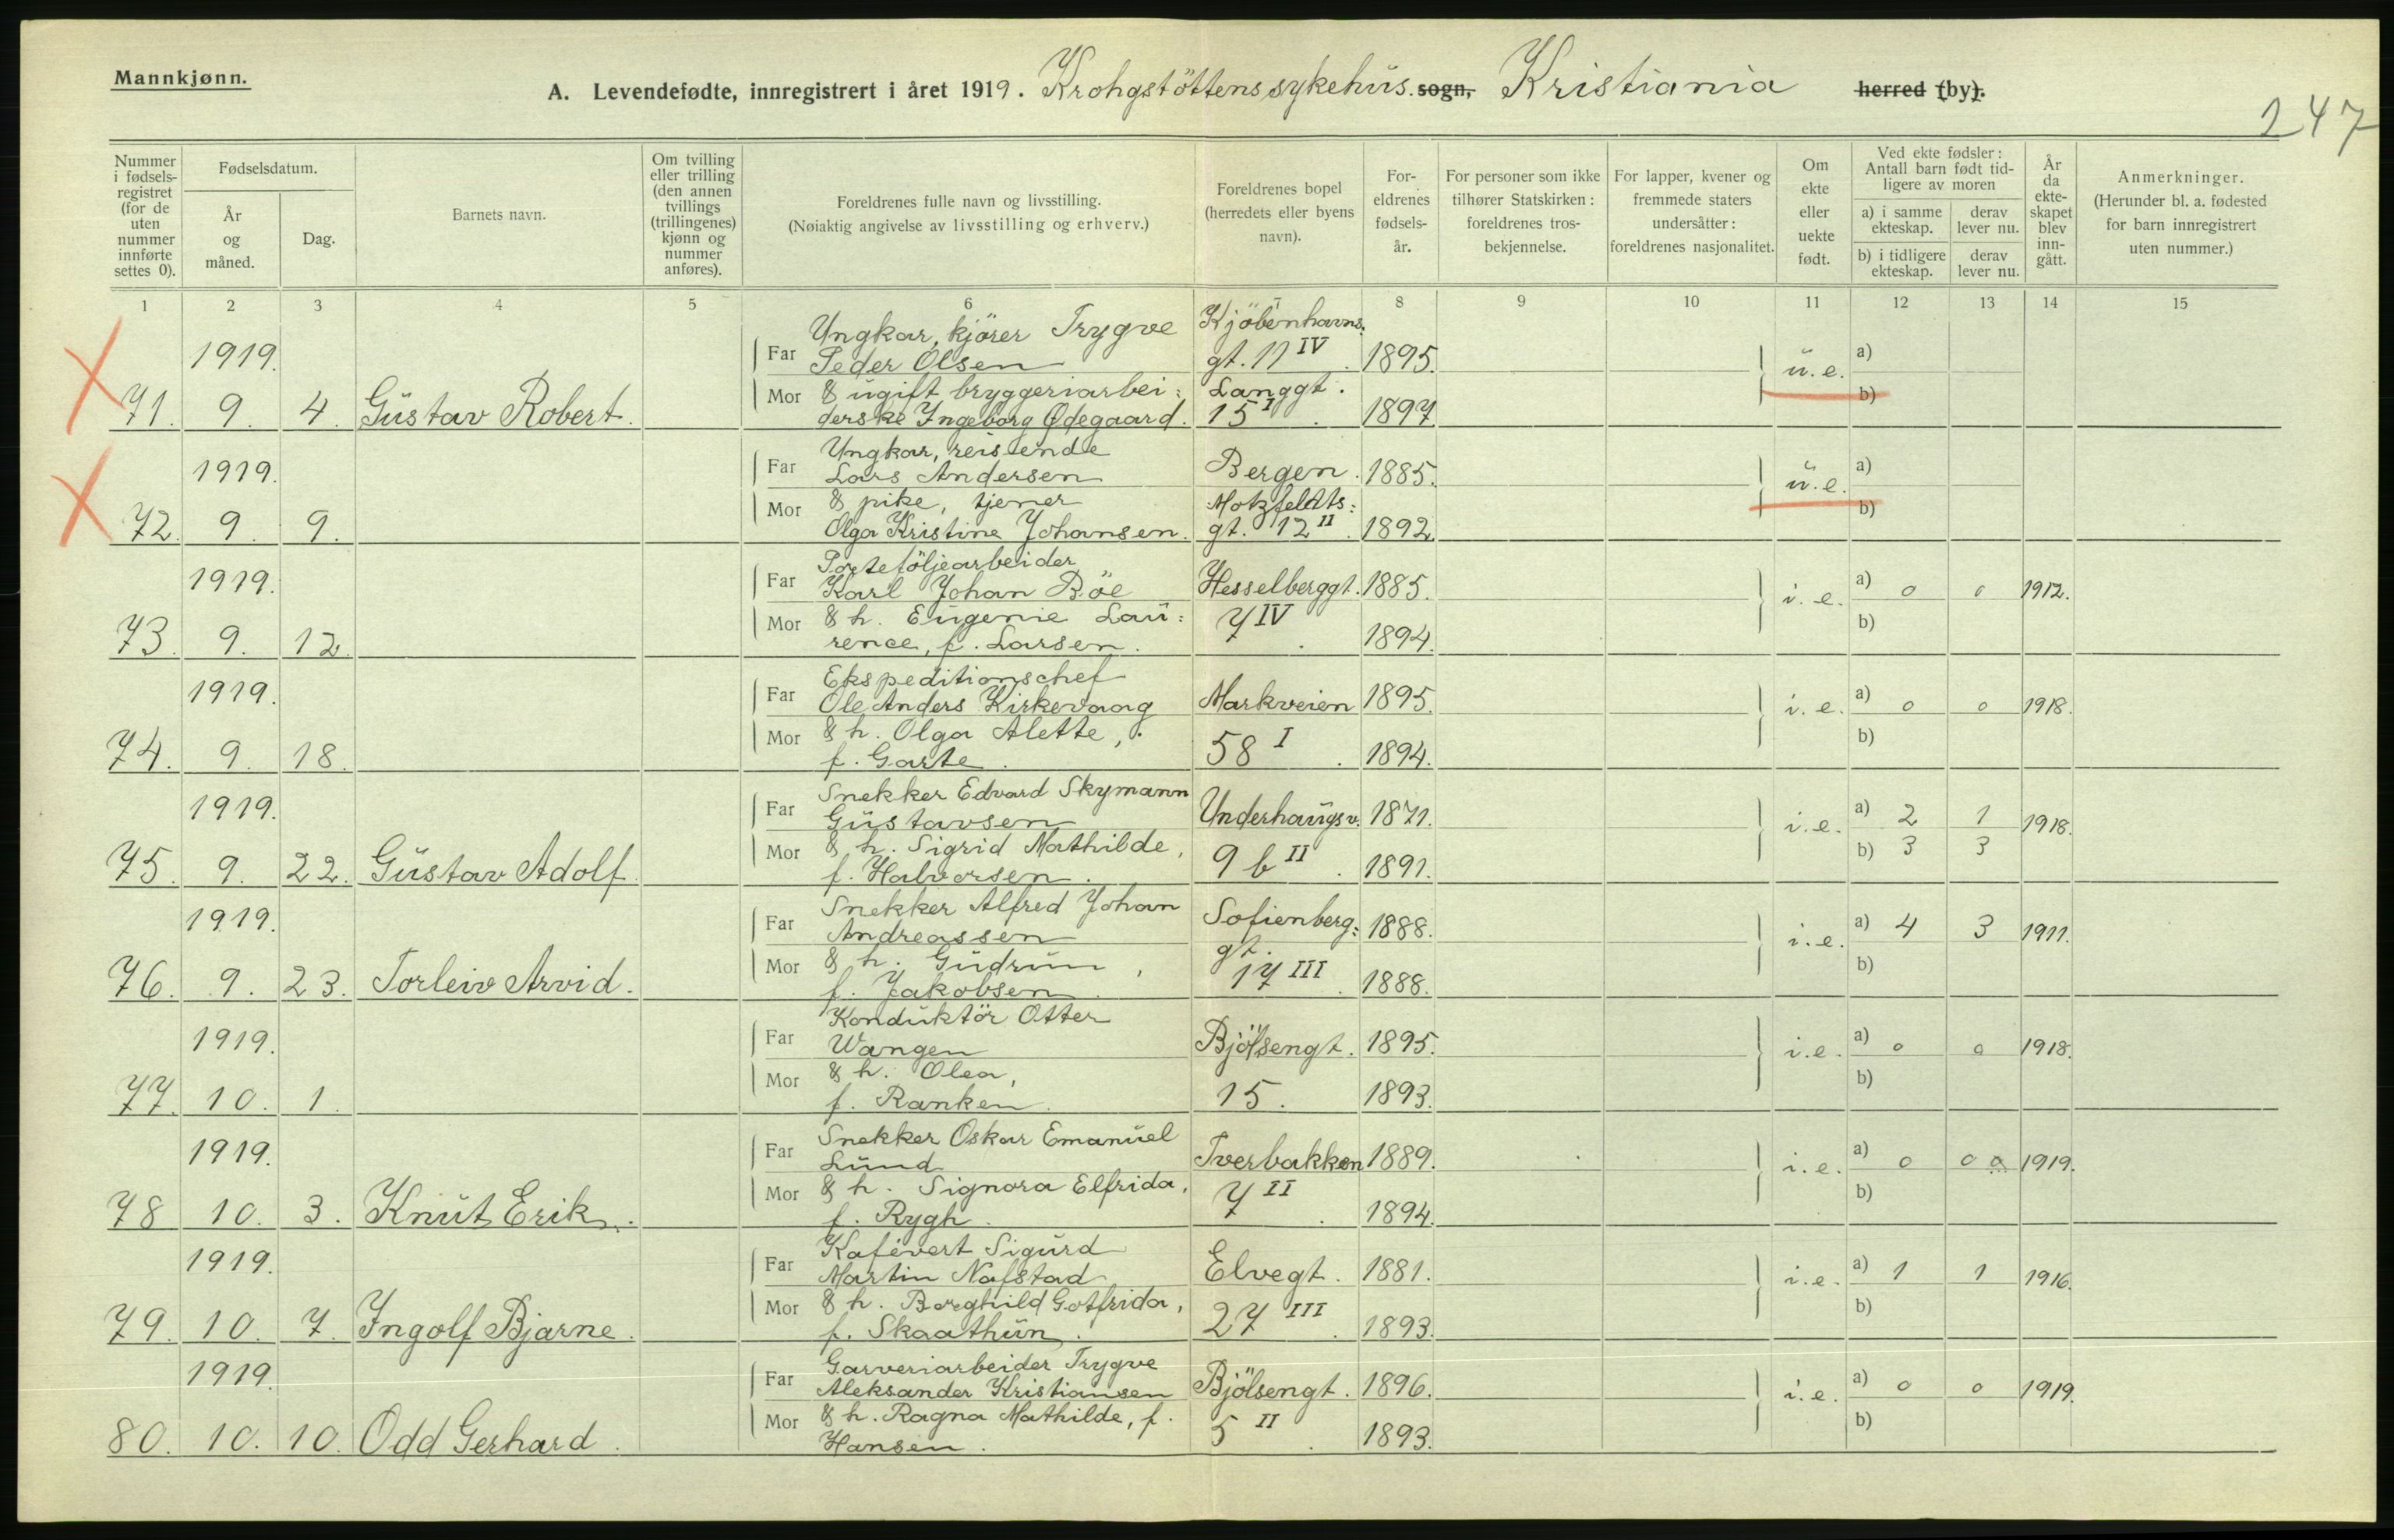 Mannkjønn.
A. Levendefødte, innregistrert i året 1919. Krohgstöttens sykehus. sogn, Kristiania herred (by).
247
Nummer i fødselsregistret (for de uten nummer innførte settes 0).
Fødselsdatum.
År og måned.
Dag.
Barnets navn.
Om tvilling eller trilling (den annen tvillings (trillingenes) kjønn og nummer anføres).
Foreldrenes fulle navn og livsstilling.
(Nøiaktig angivelse av livsstilling og erhverv.)
Foreldrenes bopel (herredets eller byens navn).
Foreldrenes fødselsår.
For personer som ikke tilhører Statskirken: foreldrenes trosbekjennelse.
For lapper, kvener og fremmede staters undersåtter: foreldrenes nasjonalitet.
Om ekte eller uekte født.
Ved ekte fødsler: Antall barn født tidligere av moren
a) i samme ekteskap.
derav lever nu.
b) i tidligere ekteskap.
derav lever nu.
År da ekteskapet blev inngått.
Anmerkninger.
(Herunder bl. a. fødested for barn innregistrert uten nummer.)
1 2 3 4 5 6 7 8 9 10 11 12 13 14 15
Ungkar, kjörer Trygve Kjöbenhavns.
1919. Far Peder Olsen gt. 11 IV. 1895. u. e. a)
Mor & ugift bryggeriarbei: Langgt. b)
71. 9. 4. Gustav Robert. derske Ingeborg Ødegaard. 15 I. 1897
Ungkar, reisende
1919. Far Lars Andersen Bergen. 1885. u. e. a)
Mor & pike, tjener Motzfeldts: b)
72. 9. 9. Olga Kristine Johansen. gt. 12 II. 1892
Porteföljearbeider
1919. Far Karl Johan Böe Hesselberggt. 1885. i. e. a) 0 0 1912.
Mor & h. Eugenie Lau: 7 IV b)
73. 9. 12. rence, f. Larsen. 1894.
Ekspeditionschef
1919. Far Ole Anders Kirkevaag Markveien 1895. i. e. a) 0 0 1918.
Mor & h. Olga Alette, b)
74. 9. 18. f. Garte. 58 I. 1894.
Snekker Edvard Skymann
1919. Far Gustavsen Underhaugsv. 1871. i. e. a) 2 1 1918.
Mor & h. Sigrid Mathilde, b) 3 3
75. 9. 22. Gustav Adolf f. Halvorsen. 9 b II. 1891.
Snekker Alfred Johan
1919. Far Andreassen Sofienberg: 1888. i. e. a) 4 3 1911.
Mor & h. Gudrun, gt. b)
76. 9. 23. Torleiv Arvid. f. Jakobsen. 17 III. 1888.
Konduktör Otter
1919. Far Wangen Bjölsengt. 1895. i. e. a) 0 0 1918.
Mor & h. Olea, b)
77. 10. 1. f. Ranken. 15. 1893.
Snekker Oskar Emanuel
1919. Far Lund Tverbakken 1889. i. e. a) 0 0 0 1919.
Mor & h. Signora Elfrida, 7 II b)
78 10. 3. Knut Erik. f. Rygh. 1894.
Kafévert Sigurd
1919. Far Martin Nafstad Elvegt. 1881. i. e. a) 1 1 1916.
Mor & h. Borghild Gotfrida, b)
79. 10. 7. Ingolf Bjarne. f. Skaathun. 27 III. 1893.
Garveriarbeider Trygve
1919. Far Aleksander Kristiansen Bjölsengt. 1896. i. e. a) 0 0 1919.
Mor & h. Ragna Mathilde, f. b)
80. 10. 10. Odd Gerhard. Hansen. 5 II. 1893.